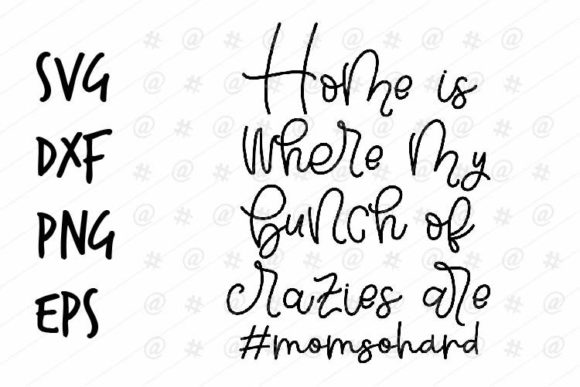 SVG
DXF
PNG
EPS
Home is
where my
bunch of
crazies are
#momsohard